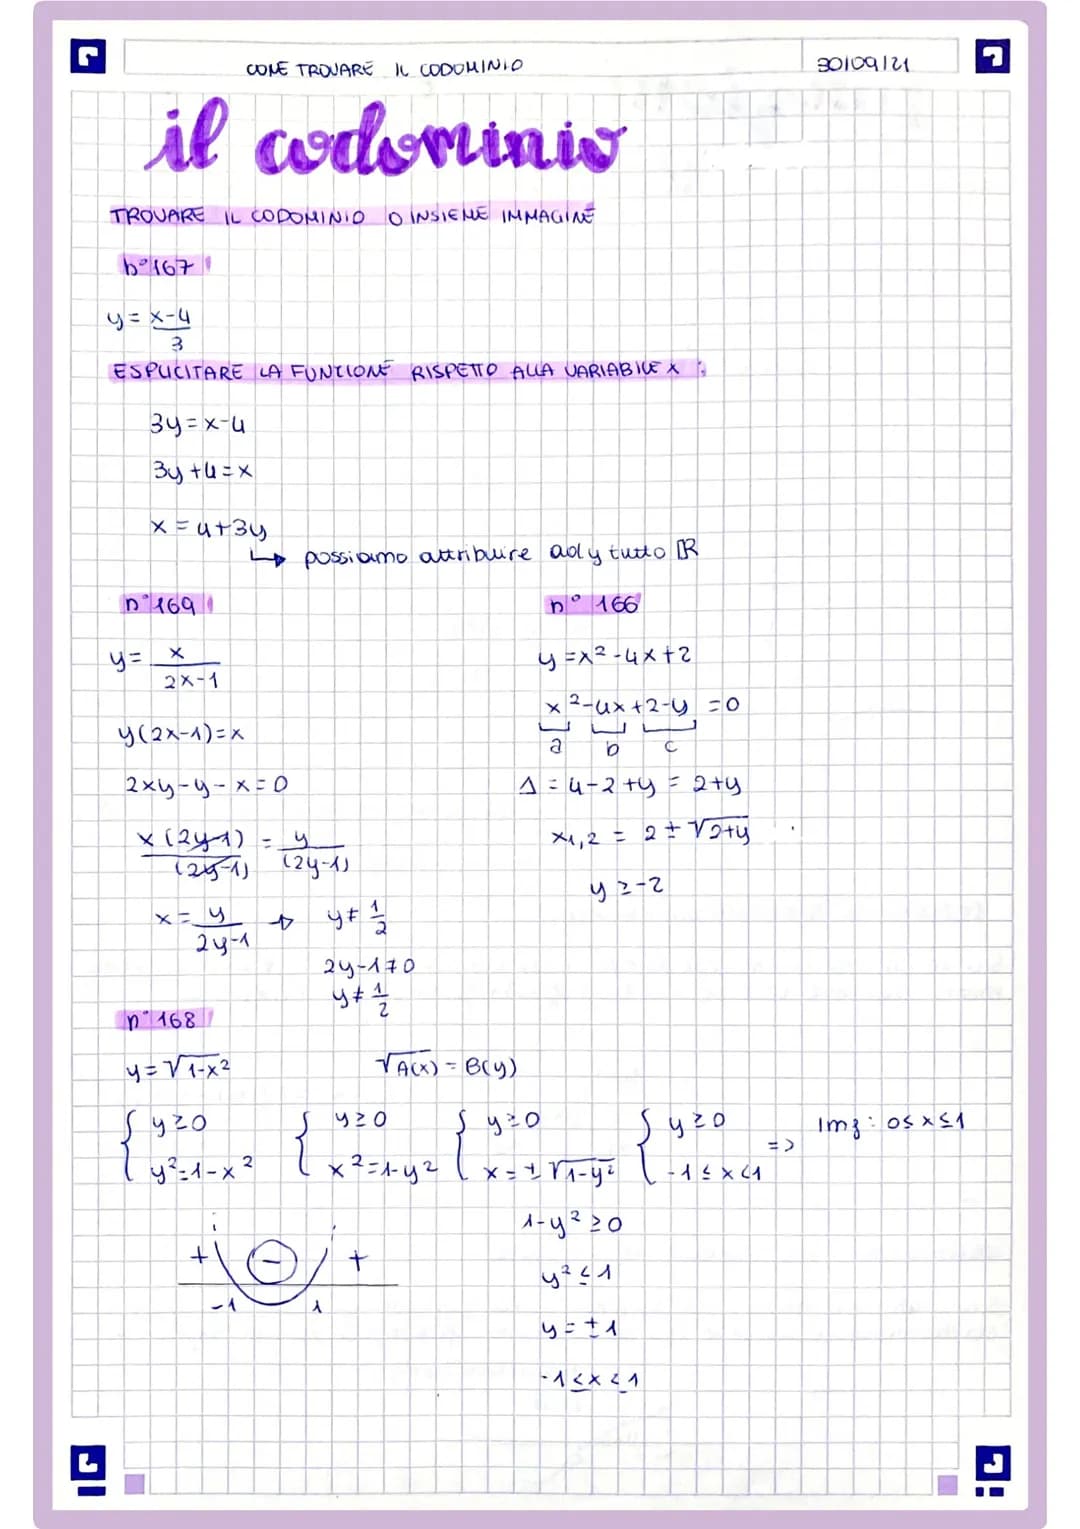 COME TROVARE IL CODOMINIO
30/09/21
il codominio
TROVARE IL CODOMINIO O INSIEME IMMAGINE
n°167
y = x-4 / 3
ESPLICITARE LA FUNZIONE RISPETTO ALLA VARIABILE x :
3y = x-4
3y+4 = x
x = 4+3y
↳ possiamo attribuire ad y tutto ℝ
n°169
y = x / 2x-1
y(2x-1)=x
2xy-y-x=0
x(2y-1) / (2y-1) = y / (2y-1)
x = y / 2y-1 → y≠ 1/2
2y-1≠0
y≠ 1/2
n° 166
y = x²-4x+2
x²-4x+2-y = 0
a b c
Δ = 4-2+y = 2+y
x1,2 = 2 ± √2+y
y ≥ -2
n°168
y = √1-x² √A(x) = B(y)
{ y≥0 { y≥0 { y≥0 { y≥0 => Imf: 0≤x≤1
{ y²=1-x² { x²=1-y² { x=±√1-y² { -1≤x<1
+ - +
-1 1
1-y²≥0
y²≤1
y=±1
-1≤x≤1